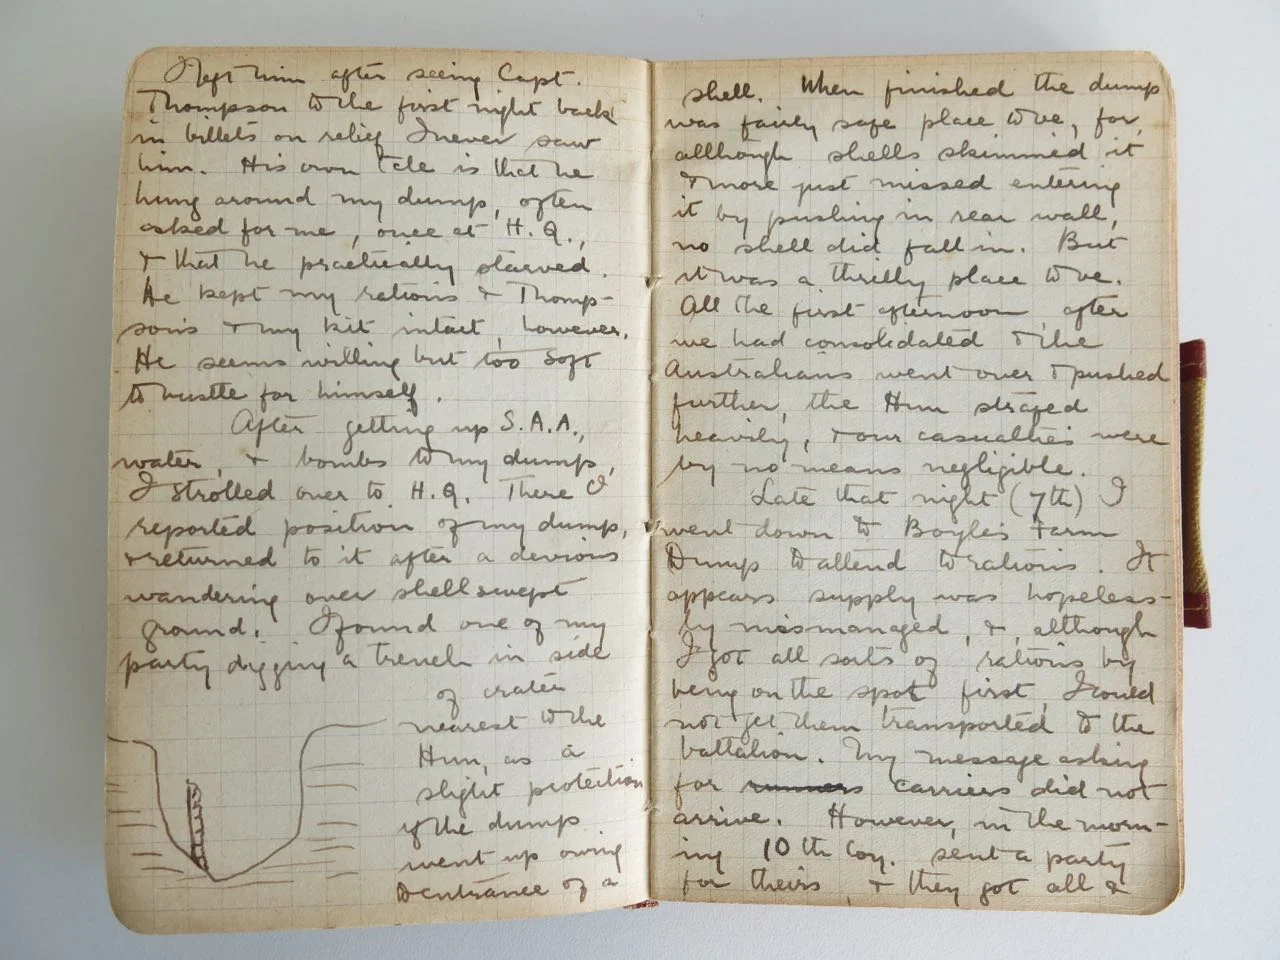 I left him after seeing Capt.
Thompson to the first night back
in billets on relief I never saw
him. His own tale is that he
hung around my dump, often
asked for me, once at H.Q.,
& that he practically starved.
He kept my rations & Thomp-
son's & my kit intact, however.
He seems willing but too soft
to hustle for himself.
After getting up S.A.A.,
water, & bombs to my dump,
I strolled over to H.Q. There I
reported position of my dump,
& returned to it after a devious
wandering over shellswept
ground. I found one of my
party digging a trench in side
of crater
nearest to the
Hun, as a
slight protection
if the dump
went up owing
to entrance of a
shell. When finished the dump
was fairly safe place to be, for,
allthough shells skimmed it
& more just missed entering
it by pushing in rear wall,
no shell did fall in. But
it was a thrilly place to be.
All the first afternoon, after
we had consolidated & the
Australians went over & pushed
further, the Hun strafed
heavily, & our casualties were
by no means negligible.
Late that night (7th) I
went down to Boyle's Farm
Dump to attend to rations. It
appears supply was hopeless-
ly mismanaged, &, although
I got all sorts of rations by
being on the spot first, I could
not get them transported to the
battalion. My message asking
for runners carriers did not
arrive. However, in the morn-
ing 10th Coy. sent a party
for theirs, & they got all &